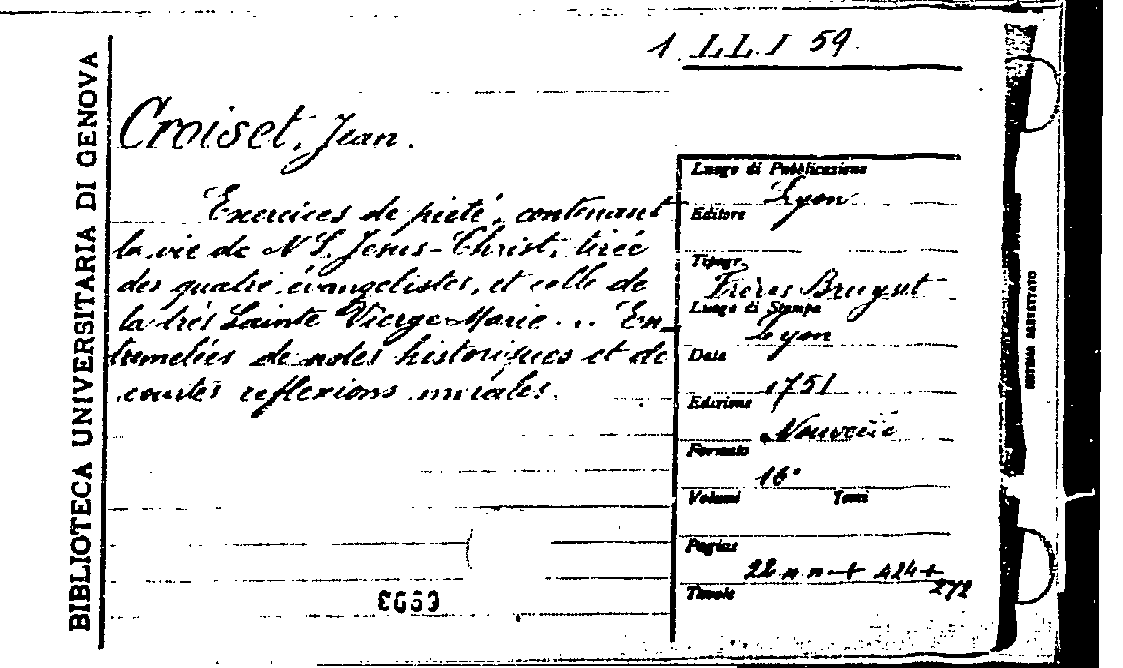 1. LL.I 59.
BIBLIOTECA UNIVERSITARIA DI GENOVA
Croiset, Jean.
Exercices de pieté, contenant
la vie de N. S. Jesus-Christ, tirée
des quatre évangelistes, et celle de
la très Sainte Vierge Marie ... En
tremelées de notes historiques et de
courtes reflexions morales.
Luogo di Pubblicazione
Lyon
Editore
Tipogr.
Frères Bruyset
Luogo di Stampa
Lyon
Data
1751
Edizione
Nouvelle
Formato
16°
Volumi Tomi
Pagine
22 n n + 424 +
272
Tavole